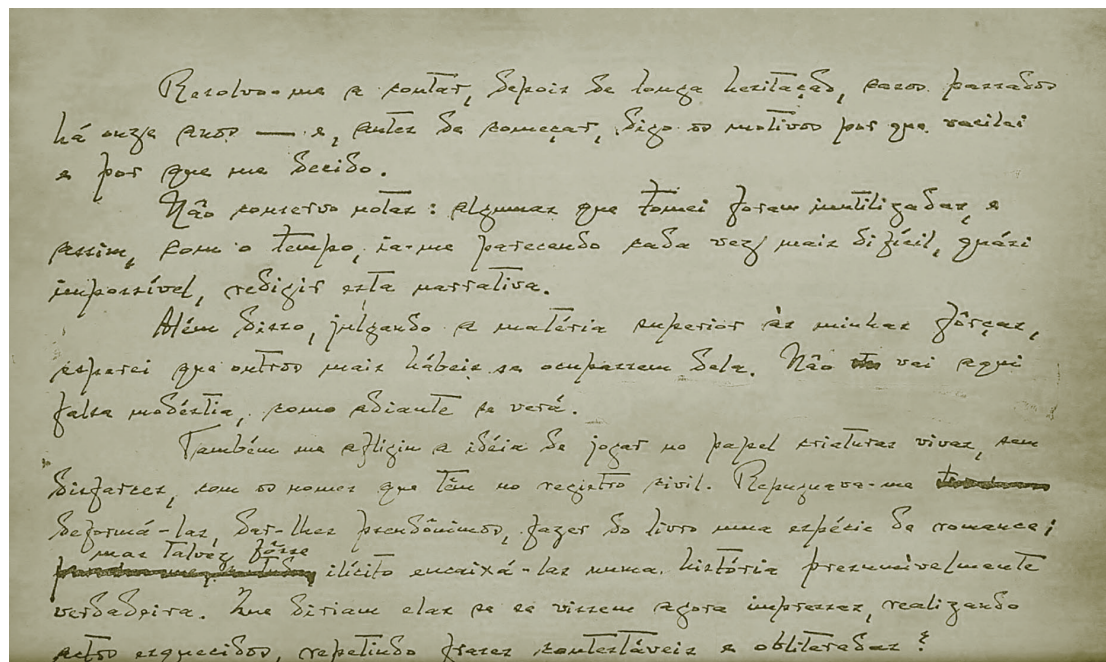 Resolvo-me a contar, depois de longa hesitação, casos passados
há onze anos — e, antes de começar, digo os motivos por que vacilei
e por que me decido.
Não conservo notas: algumas que tomei foram inutilizadas, e
assim, com o tempo, ia-me parecendo cada vez mais difícil, quási
impossível, redigir esta narrativa.
Além disso, julgando a matéria superior às minhas fôrças,
esperei que outros mais hábeis se ocupassem dela. Não vai aqui
falsa modéstia, como adiante se verá.
Também me afligiu a idéia de jogar no papel criaturas vivas, sem
disfarces, com os nomes que têm no registro civil. Repugnava-me
deformá-las, dar-lhes pseudônimos, fazer do livro uma espécie de romance;
mas talvez fôsse
ilícito encaixá-las numa história presumìvelmente
verdadeira. Que diriam elas se se vissem agora impressas, realizando
actos esquecidos, repetindo frases contestáveis e obliteradas?